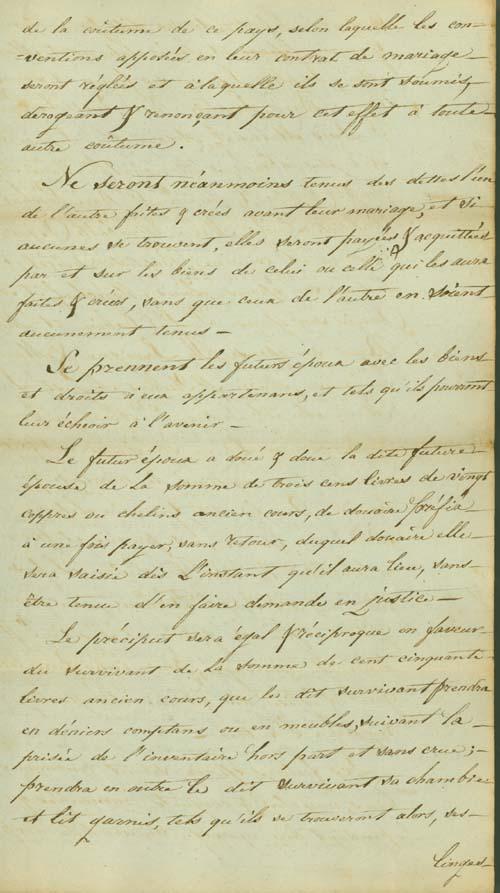 de la coûtume de ce pays, selon laquelle les con-
-ventions apposées en leur contrat de mariage
seront réglées et à laquelle ils se sont soumis,
derogeant & renonçant pour cet effet à toute
autre coûtume.
Ne seront néanmoins tenus des dettes l'un
de l'autre faites & créés avant leur mariage, et si
aucunes se trouvent, elles seront payées & acquittées
par et sur les biens de celui ou celle qui les aura
faites & créés, sans que ceux de l'autre en soient
aucunement tenus —
Se prennent les futurs époux avec les biens
et droits à eux appartenans, et tels qu'ils pourront
leur échéoir à l'avenir —
Le futur époux a doué & doue la dite future
épouse de la somme de trois cens livres de vingt
coppres ou chelins ancien cours, de douaire préfix
à une fois payer, sans retour, duquel douaire elle
sera saisie dès L'instant qu'il aura lieu, sans
être tenue d'en faire demande en justice —
Le préciput sera égal & réciproque en faveur
du survivant de la somme de cent cinquante
livres ancien cours, que le dit survivant prendra
en déniers comptans ou en meubles, suivant la
prisée de l'inventaire hors part et sans crue; —
prendra en outre le dit survivant sa chambre
et lit garnis, tels qu'ils se trouveront alors, ses —
linges —